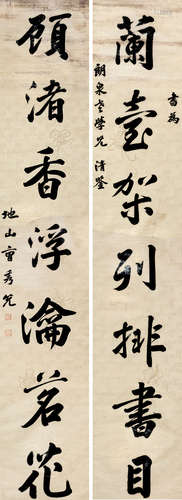 蘭臺架列排書目
書為
朗泉老學兄 清鑒
顧渚香浮瀹茗花
地山曹秀先